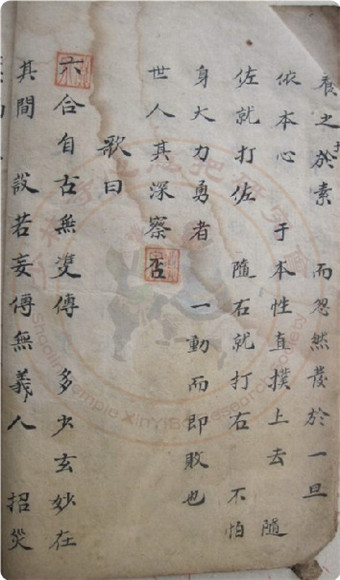 養之於素 而忽然發於一旦
依本心 于本性直撲上去 隨
佐就打佐 隨右就打右 不怕
身大力勇者 一動而即敗也
世人其深察否
歌曰
六合自古無雙傳 多少玄妙在
其間 設若妄傳無義人 招災